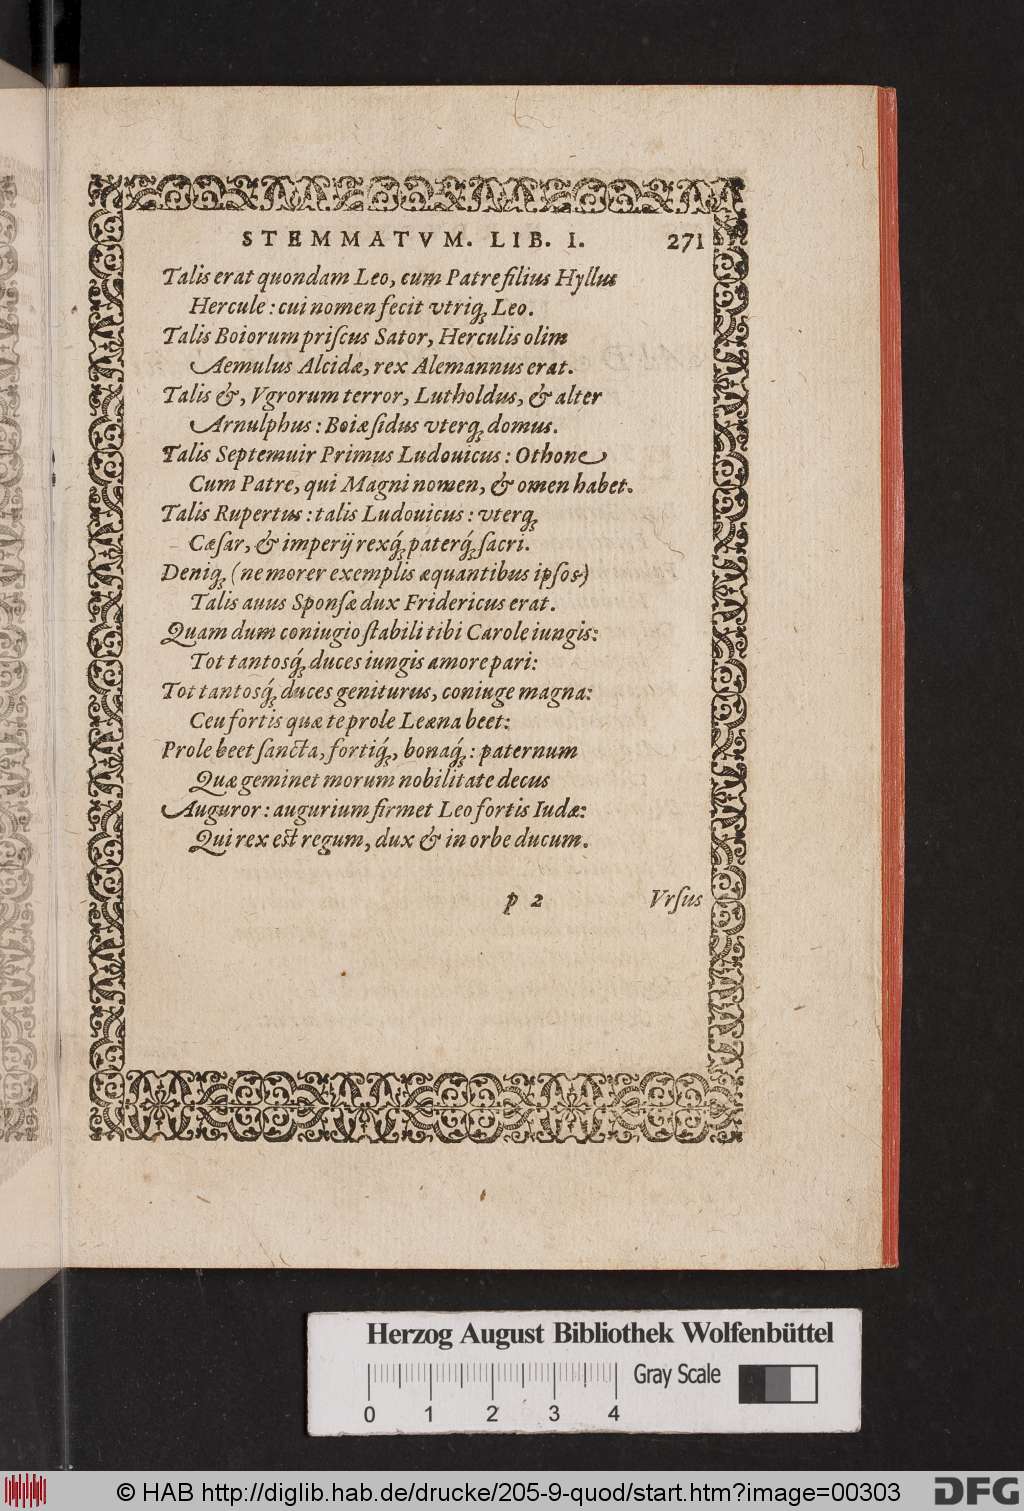 STEMMATVM. LIB. I. 271
Talis erat quondam Leo, cum Patre filius Hyllus
Hercule: cui nomen fecit vtriq́ꝫ Leo.
Talis Boiorum priſcus Sator, Herculis olim
Aemulus Alcidæ, rex Alemannus erat.
Talis &, Vgrorum terror, Lutholdus, & alter
Arnulphus: Boiæ ſidus vterqꝫ domus.
Talis Septemuir Primus Ludouicus: Othone
Cum Patre, qui Magni nomen, & omen habet.
Talis Rupertus: talis Ludouicus: vterqꝫ
Cæſar, & imperij rexq́ꝫ paterq́ꝫ ſacri.
Deniqꝫ (ne morer exemplis æquantibus ipſos)
Talis auus Sponſæ dux Fridericus erat.
Quam dum coniugio ſtabili tibi Carole iungis:
Tot tantosq́ꝫ duces iungis amore pari:
Tot tantosq́ꝫ duces geniturus, coniuge magna:
Ceu fortis quæ te prole Leæna beet:
Prole beet ſancta, fortiq́ꝫ, bonaq́ꝫ: paternum
Quæ geminet morum nobilitate decus
Auguror: augurium firmet Leo fortis Iudæ:
Qui rex est regum, dux & in orbe ducum.
p 2 Vrſus
Herzog August Bibliothek Wolfenbüttel
Gray Scale
0 1 2 3 4
© HAB http://diglib.hab.de/drucke/205-9-quod/start.htm?image=00303
DFG